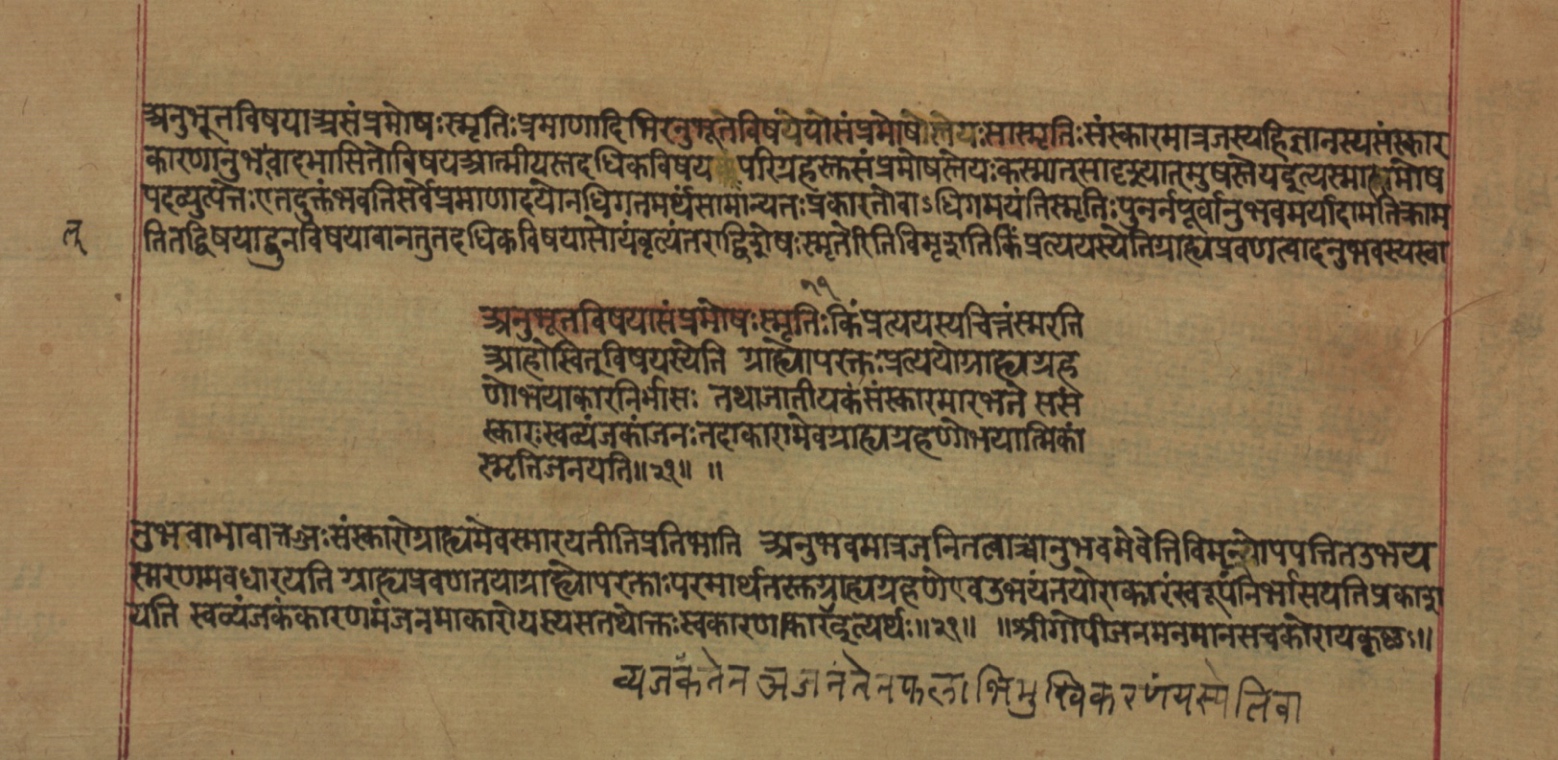 अनुभूतविषयाअसंप्रमोषःस्मृतिःप्रमाणादिभिरनुभूतेविषयेयोसंप्रमोषोस्तेयःसास्मृतिःसंस्कारमात्रजस्यहिज्ञानस्यसंस्कार
कारणानुभवावभासितोविषयआत्मीयस्तदधिकविषय परिग्रहस्तसंप्रमोषस्तेयःकस्मात्सादृश्यात्मुषस्तेयइत्यस्मात्प्रमोष
पदव्युत्पत्तेःएतदुक्तंभवतिसर्वेप्रमाणादयोनधिगतमर्थंसामान्यतःप्रकारतोवाऽधिगमयंतिस्मृतिःपुनर्नपूर्वानुभवमर्यादामतिक्राम
तितद्विषयातदूनविषयावानतुतदधिकविषयासोयंवृत्यंतराद्विशेषःस्मृतेरितिविमृशतिकिंप्रत्ययस्येतिग्राह्यप्रवणत्वादनुभवस्यस्वा
११
अनुभूतविषयासंप्रमोषःस्मृतिःकिंप्रत्ययस्यचित्तंस्मरति
आहोस्वित्विषयस्येति ग्राह्योपरक्तःप्रत्ययोग्राह्यग्रह
णोभयाकारनिर्भासः तथाजातीयकंसंस्कारमारभते ससं
स्कारःस्वव्यंजकांजनःतदाकारामेवग्राह्यग्रहणोभयात्मिकां
स्मृतिंजनयति॥११॥ ॥
नुभवाभावात्तज्जःसंस्कारोग्राह्यमेवस्मारयतीतिप्रतिभाति अनुभवमात्रजनितत्वाच्चानुभवमेवेतिविमृश्योपपत्तितउभय
स्मरणमवधारयति ग्राह्यप्रवणतयाग्राह्योपरक्तःपरमार्थतस्तग्राह्यग्रहणेएवउभयंतयोराकारंस्वरूपंनिर्भासयतिप्रकाश
यति स्वव्यंजकंकारणमंजनमाकारोयस्यसतथोक्तःस्वकारणाकारइत्यर्थः॥११॥ ॥श्रीगोपीजनमनमानसचकोरायकृष्णः॥
व्यजकंतेन अजनंतेनफलाभिमुखिकरणंयस्येतिवा